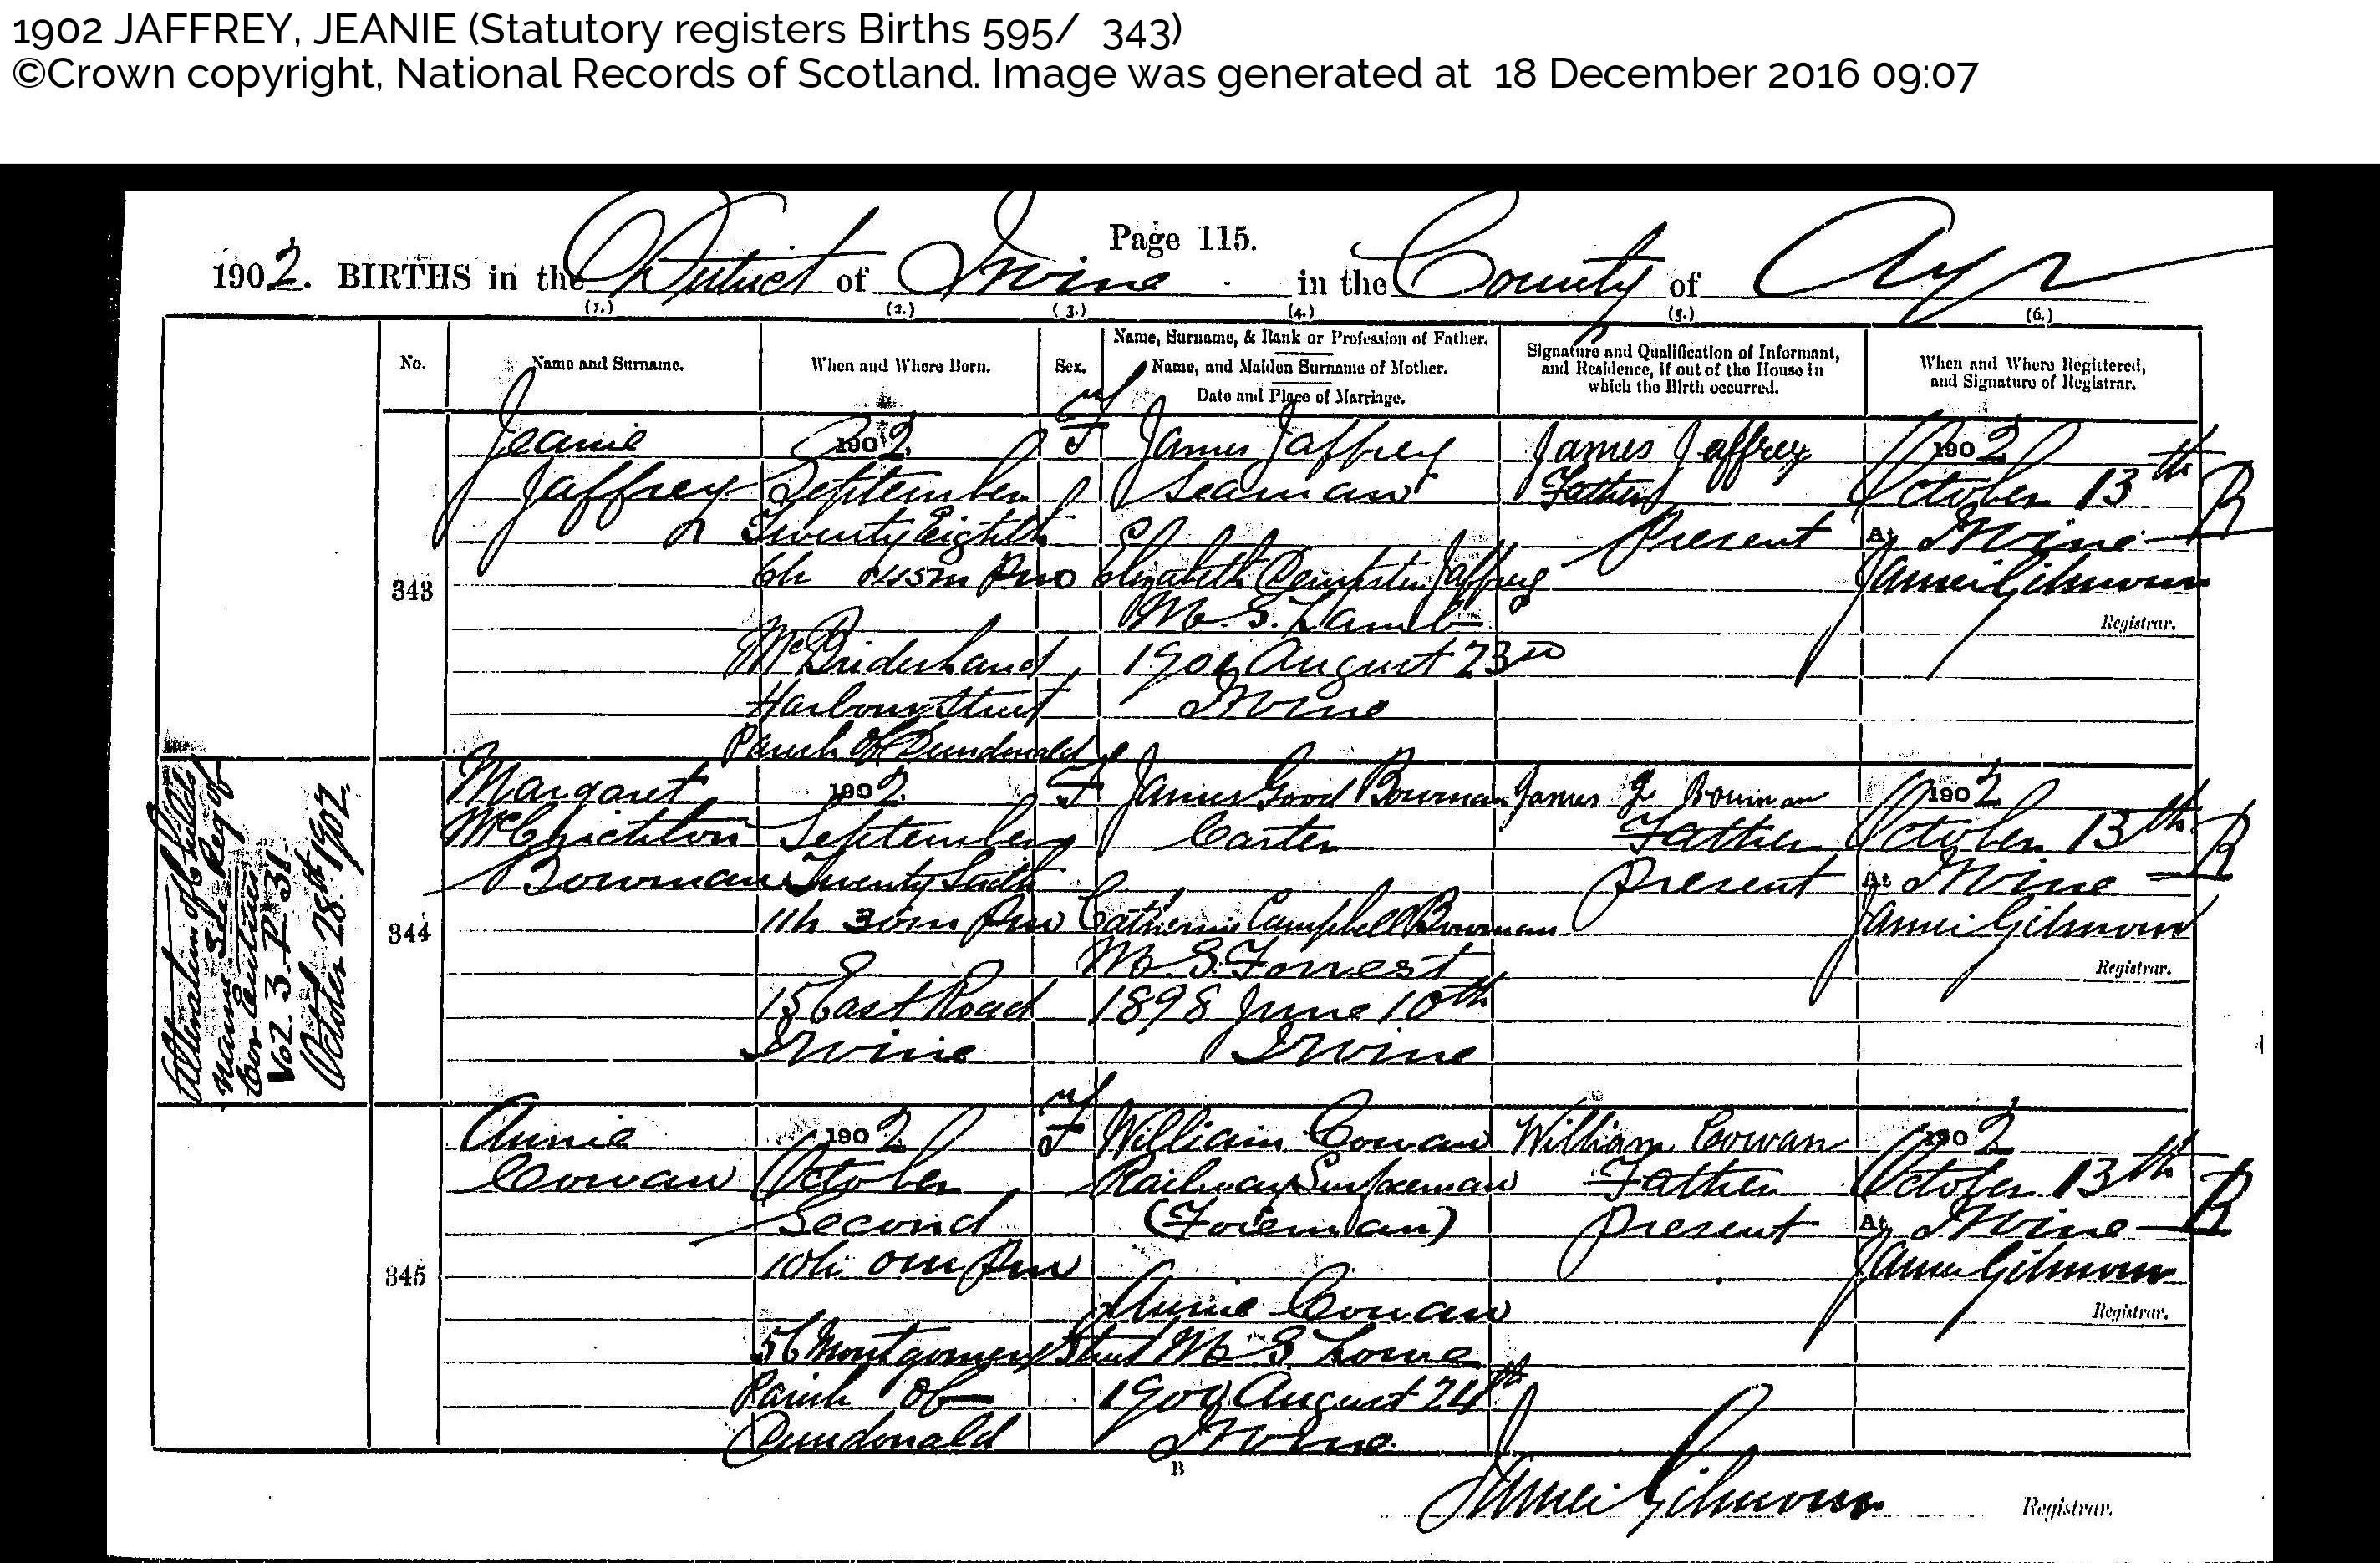 1902 JAFFREY, JEANIE (Statutory registers Births 595/ 343)
©Crown copyright, National Records of Scotland. Image was generated at 18 December 2016 09:07
Page 115.
1902. BIRTHS in the District of Irvine in the County of Ayr
(1.) (2.) (3.) (4.) (5.) (6.)
No.
Name and Surname.
When and Where Born.
Sex.
Name, Surname, & Rank or Profession of Father.
Name, and Maiden Surname of Mother.
Date and Place of Marriage.
Signature and Qualification of Informant,
and Residence, if out of the House in
which the Birth occurred.
When and Where Registered,
and Signature of Registrar.
343
Jeanie
Jaffrey
1902
September
Twenty Eighth
6h 45m PM
McBride's Land
Harbour Street
Parish of Dundonald
F
James Jaffrey
Seaman
Elizabeth Dempster Jaffrey
M.S. Lamb
August 23rd
Irvine
James Jaffrey
Father
Present
1902
October 13th
At Irvine
James Gilmour
Registrar.
Alteration of Child's
name See Reg of
Cor Entries
Vol. 3. P. 31.
October 28th 1902.
344
Margaret
McCrichton
Bowman
1902
September
Twenty Sixth
11h 30m PM
15 East Road
Irvine
F
James Good Bowman
Carter
Catherine Campbell Bowman
M.S. Forrest
1898 June 10th
Irvine
James G. Bowman
Father
present
1902
October 13th
At Irvine
James Gilmour
Registrar.
345
Annie
Cowan
1902
October
Second
10h 0m PM
56 Montgomery Street
Parish of
Dundonald
F
William Cowan
Railway Surfaceman
(Foreman)
Annie Cowan
M.S.
1900 August 24th
Irvine
William Cowan
Father
present
1902
October 13th
At Irvine
James Gilmour
Registrar.
B
James Gilmour
Registrar.